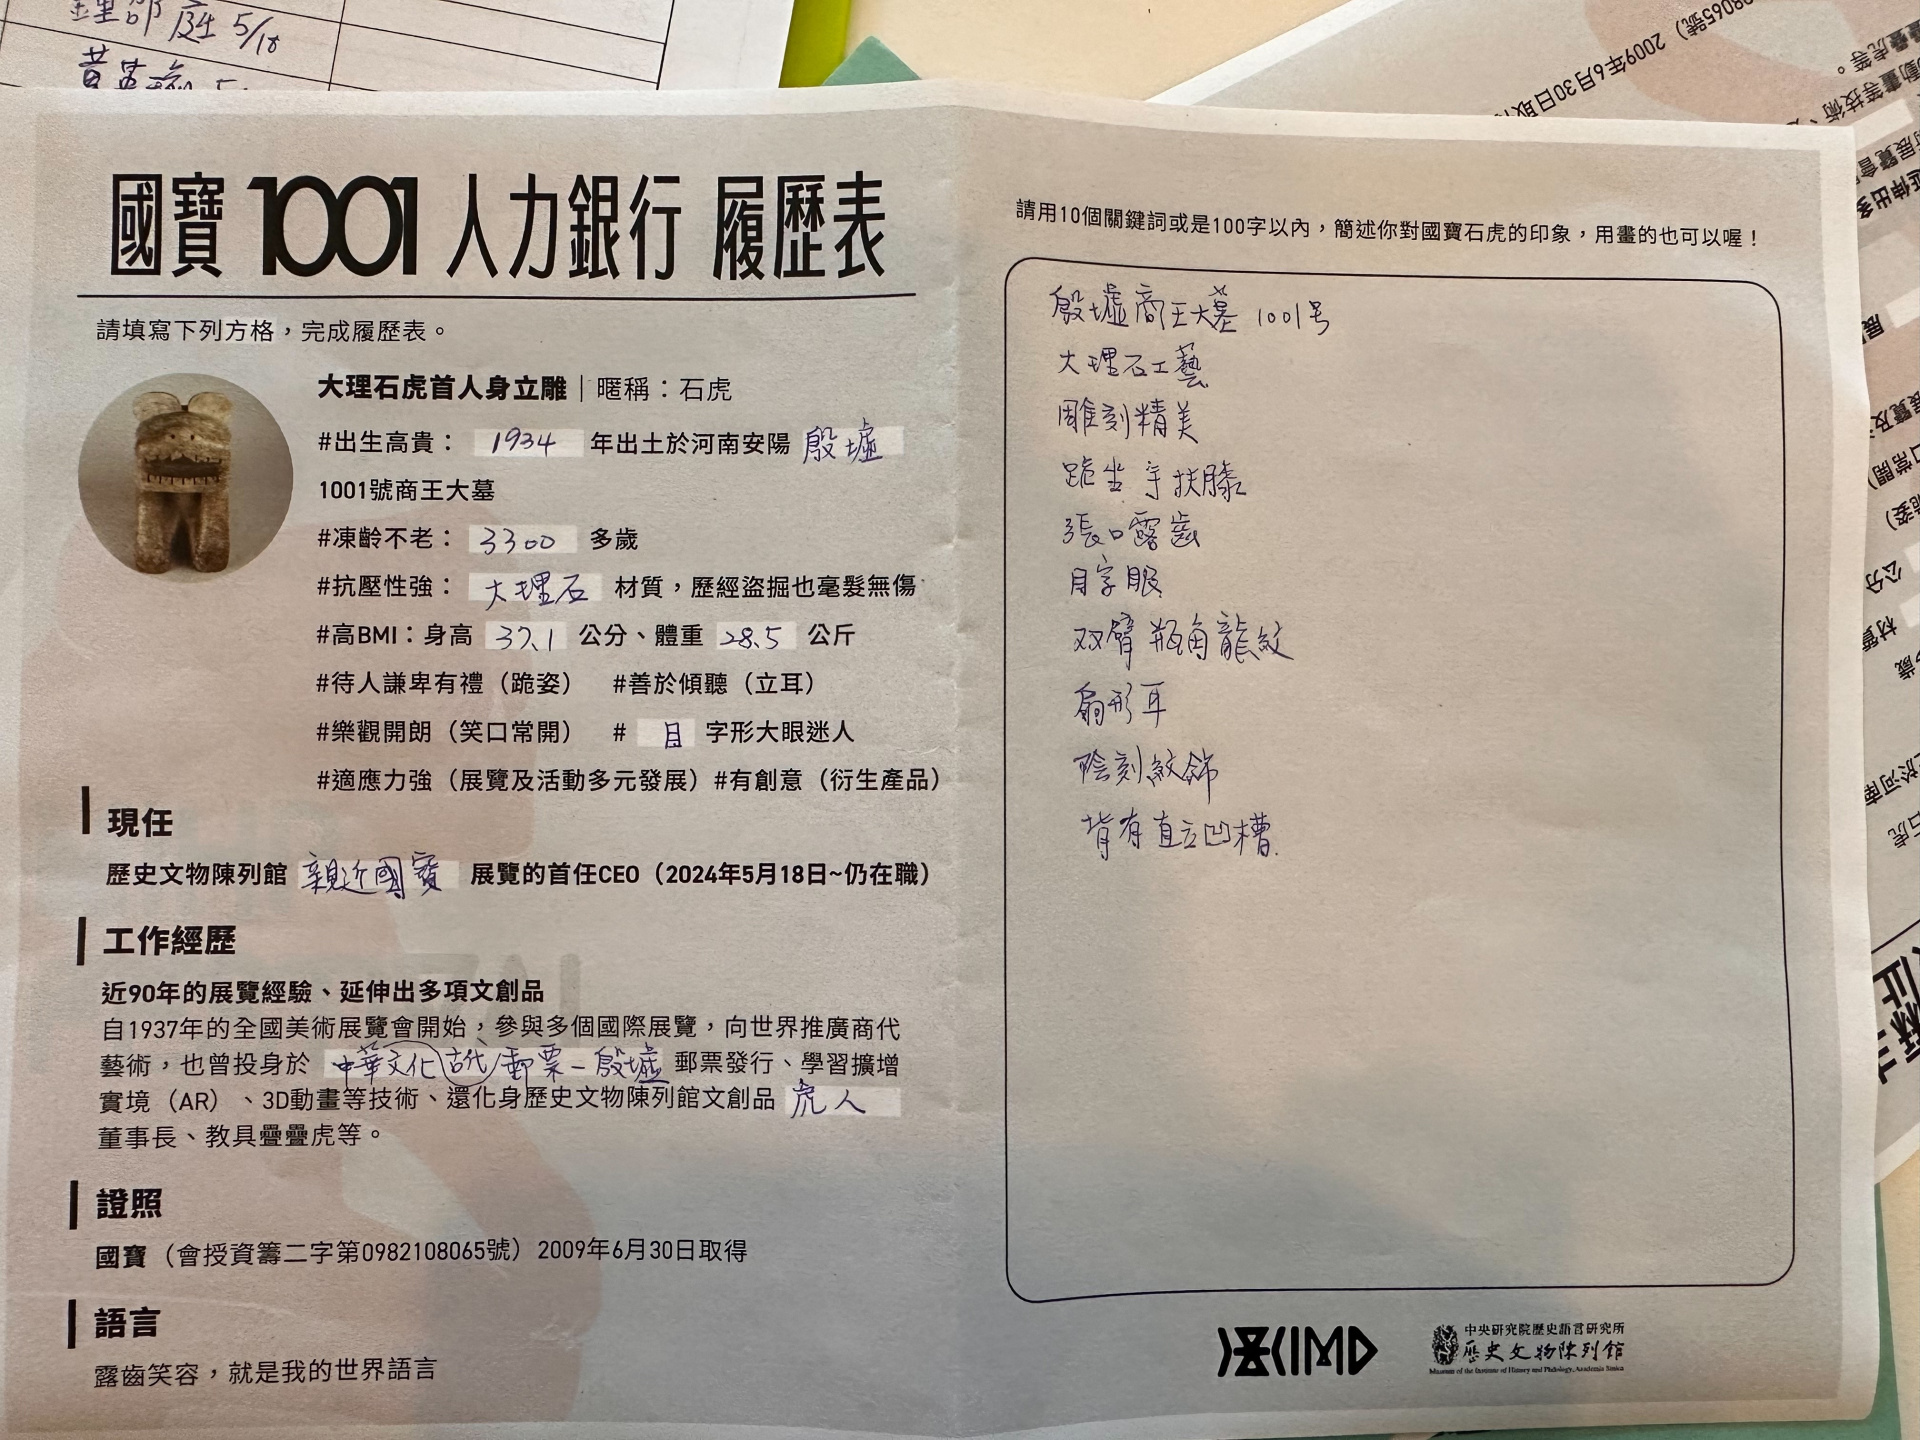 國寶1001人力銀行 履歷表
請填寫下列方格，完成履歷表。
大理石虎首人身立雕｜暱稱：石虎
#出生高貴： 1934 年出土於河南安陽 殷墟
1001號商王大墓
#凍齡不老： 3300 多歲
#抗壓性強： 大理石 材質，歷經盜掘也毫髮無傷
#高BMI：身高 37.1 公分、體重 28.5 公斤
#待人謙卑有禮（跪姿） #善於傾聽（立耳）
#樂觀開朗（笑口常開） # 目 字形大眼迷人
#適應力強（展覽及活動多元發展）#有創意（衍生產品）
現任
歷史文物陳列館 親近國寶 展覽的首任CEO（2024年5月18日~仍在職）
工作經歷
近90年的展覽經驗、延伸出多項文創品
自1937年的全國美術展覽會開始，參與多個國際展覽，向世界推廣商代
藝術，也曾投身於 中華文化古代郵票–殷墟 郵票發行、學習擴增
實境（AR）、3D動畫等技術、還化身歷史文物陳列館文創品 虎人
董事長、教具疊疊虎等。
證照
國寶（會授資籌二字第0982108065號）2009年6月30日取得
語言
露齒笑容，就是我的世界語言
請用10個關鍵詞或是100字以內，簡述你對國寶石虎的印象，用畫的也可以喔！
殷墟商王大墓 1001号
大理石工藝
雕刻精美
跪坐手扶膝
張口露齒
目字眼
双臂瓶角龍紋
扇形耳
陰刻紋飾
背有直立凹槽.
中央研究院歷史語言研究所
歷史文物陳列館
Museum of the Institute of History and Philology, Academia Sinica
5/18
08065號）2009年6月30日取